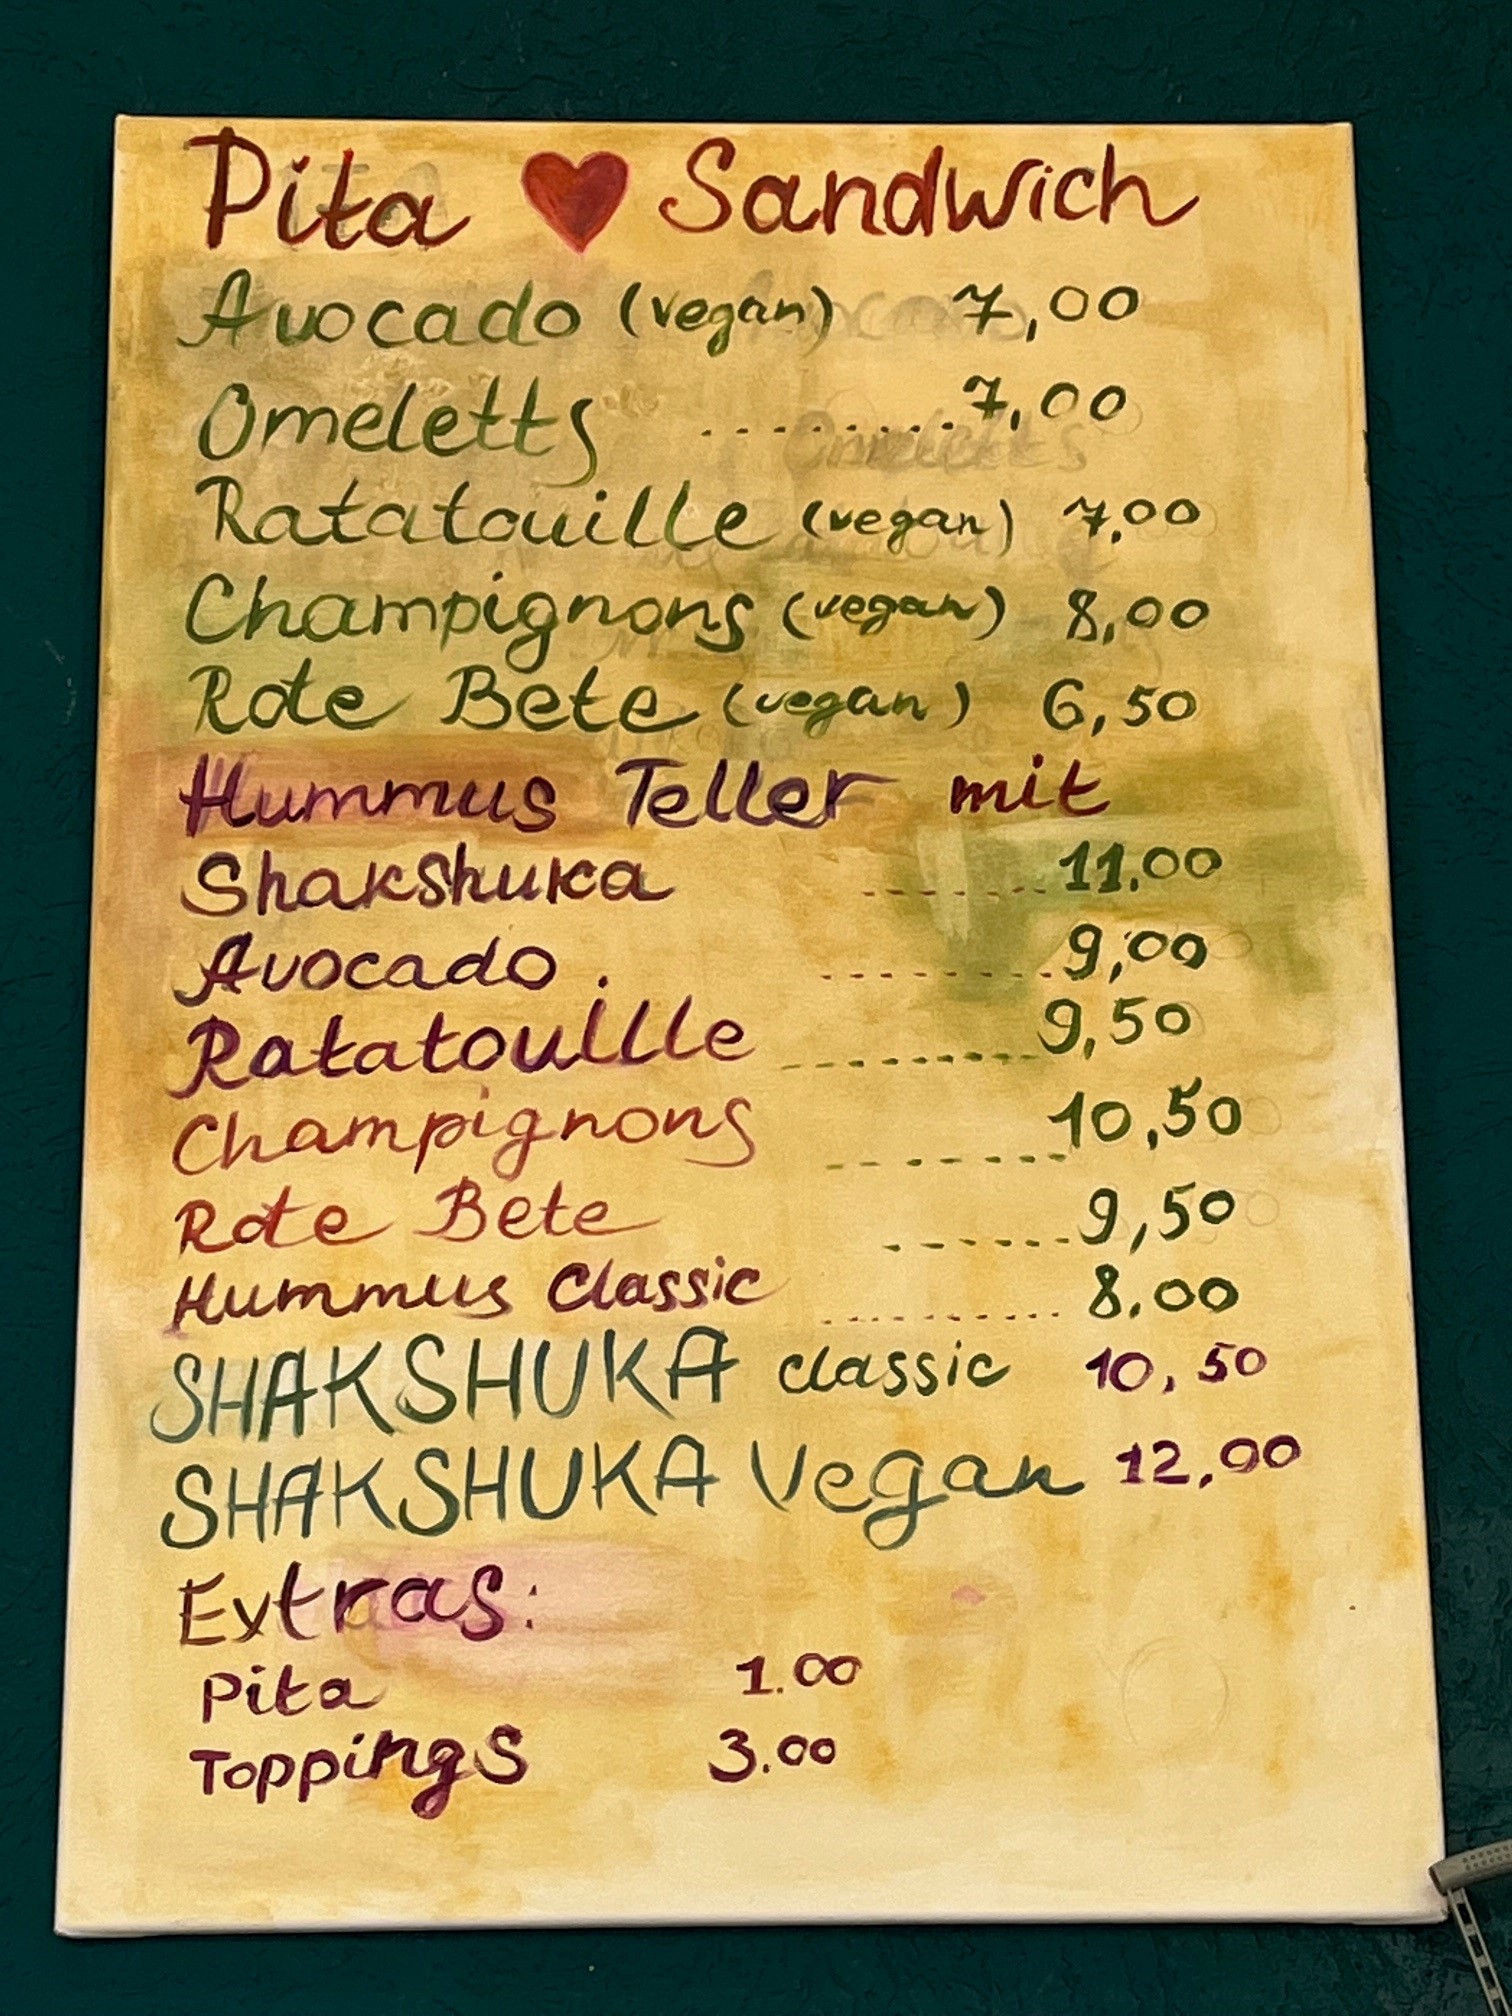 Pita ❤ Sandwich
Avocado (vegan) 7,00
Omeletts .......... 7,00
Ratatouille (vegan) 7,00
Champignons (vegan) 8,00
Rote Bete (vegan) 6,50
Hummus Teller mit
Shakshuka ......... 11.00
Avocado .......... 9,00
Ratatouille .......... 9,50
Champignons ......... 10,50
Rote Bete ....... 9,50
Hummus Classic .......... 8.00
SHAKSHUKA classic 10,50
SHAKSHUKA Vegan 12,00
Extras:
Pita 1.00
Toppings 3.00